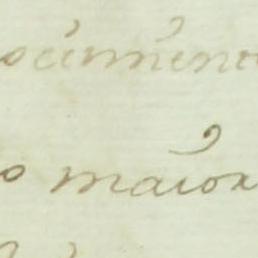 ocumento
o maior